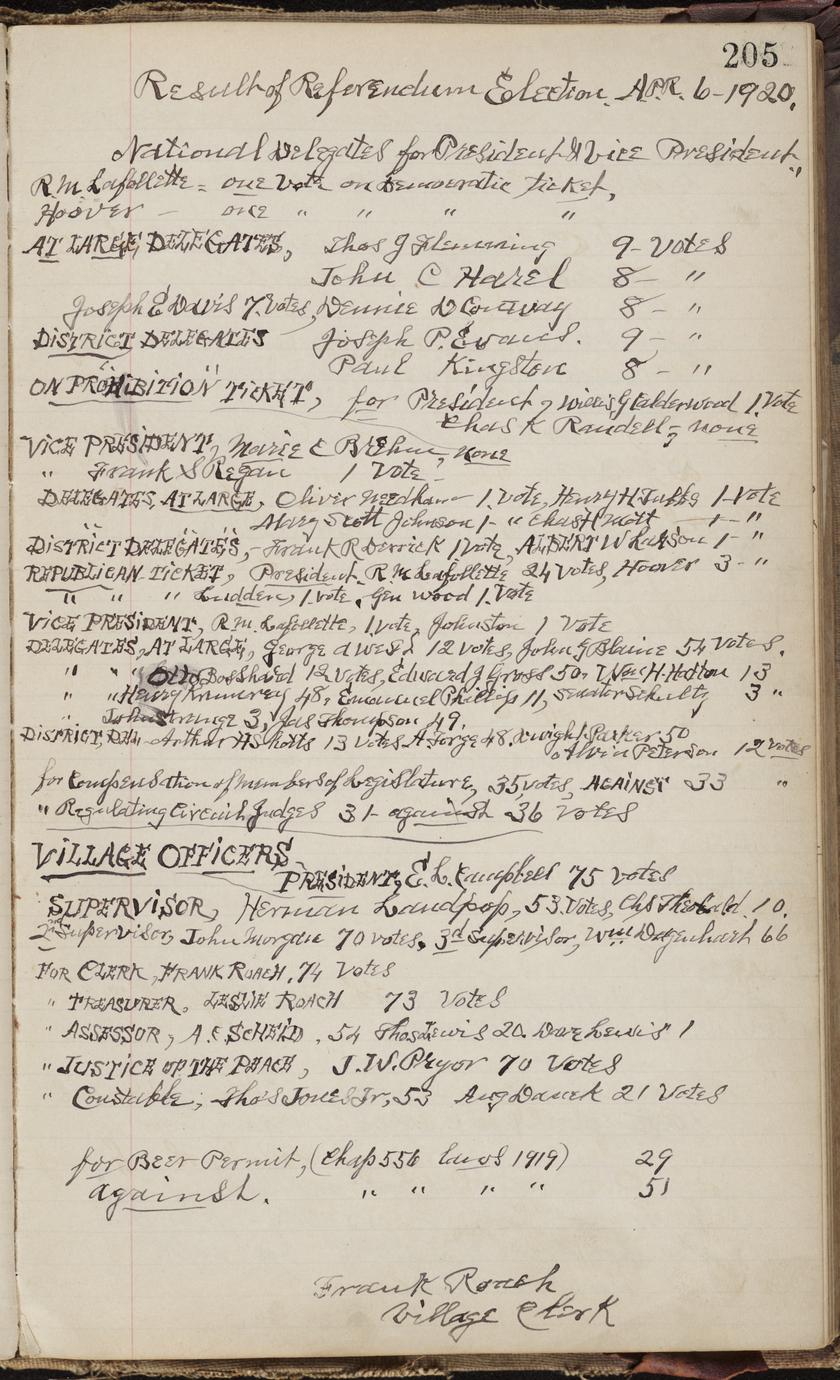 205
Result of Referendum Election. APR. 6-1920.
National Delegates for President & Vice President,
R. M. Lafollette = one Vote on Democratic Ticket,
Hoover - one " " " "
AT LARGE, DELEGATES, Thos J Flemming 9- Votes
John C Harel 8- "
Joseph E Davis 7. Votes, Dennie D Conway 8- "
DISTRICT DELEGATES Joseph P. Evans. 9- "
Paul Kingston 8- "
ON PROHIBITION TICKET, for President, Willis G Calderwood 1. Vote
Chas K Randell, none
VICE PRESIDENT, Marie C Brehm, none
" Frank S Regan 1 Vote
DELEGATES, AT LARGE, Oliver Needham 1. Vote, Henry H Tubbs 1- Vote
Alvey Scott Johnson 1- " Chas H Mott 1- "
DISTRICT DELEGATES, - Frank R Derrick 1 Vote, ALBERT W Larson 1- "
REPUBLICAN TICKET, President. R. M. Lafollette 24 Votes, Hoover 3- "
" " " Ludden, 1. Vote, Gen Wood 1. Vote
VICE PRESIDENT, R.M. Lafollette, 1. Vote, Johnston 1 Vote
DELEGATES, AT LARGE, George A West 12 Votes, John J Blaine 54 Votes.
" " Otto Bosshard 12 Votes, Edward J Gross 50, Wm H. Hatton 13
" " Henry Krumrey 48, Emanuel Phillip 11, Senator Schultz 3 "
" John Strange 3, Jas Thompson 49.
DISTRICT, Del, - Arthur H Sholts 13 Votes A Torge 48. Dwight Parker 50
Alvin Peterson 12 Votes
for Compensation of members of Legislature, 35 votes, AGAINST 33 "
" Regulating Circuit Judges 31- against 36 Votes
VILLAGE OFFICERS
PRESIDENT, E. L. Campbell 75 Votes
SUPERVISOR, Herman Landpop, 53. Votes, Chs Theobald. 10.
2nd Supervisor, John Morgan 70 votes. 3d Supervisor, Wm Dagenhach 66
FOR CLERK, FRANK ROACH. 74 Votes
" TREASURER, LESLIE ROACH 73 Votes
" ASSESSOR, A.C. SCHELD, 54 Thos Lewis 20. Dave Lewis 1
" JUSTICE OF THE PEACE, J. W. Pryor 70 Votes
" Constable, Thos Jones Jr, 53 Aug Dauck 21 Votes
for Beer Permit, (Chap 556 laws 1919) 29
against. " " " " 51
Frank Roach
Village Clerk